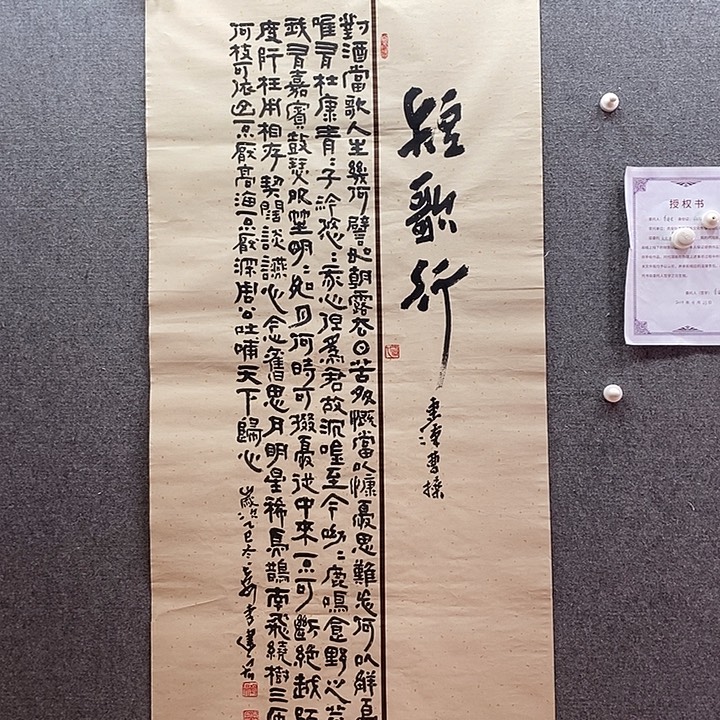 短歌行
東漢曹操
對酒當歌人生幾何譬如朝露去日苦多慨當以慷憂思難忘何以解憂
唯有杜康青〻子衿悠〻我心但為君故沉吟至今呦〻鹿鳴食野之苹
我有嘉賓鼓瑟吹笙明〻如月何時可掇憂從中來不可斷絕越陌
度阡枉用相存契闊談讌心念舊恩月明星稀烏鵲南飛繞樹三匝
何枝可依山不厭高海不厭深周公吐哺天下歸心
歲次乙巳冬李建
授权书